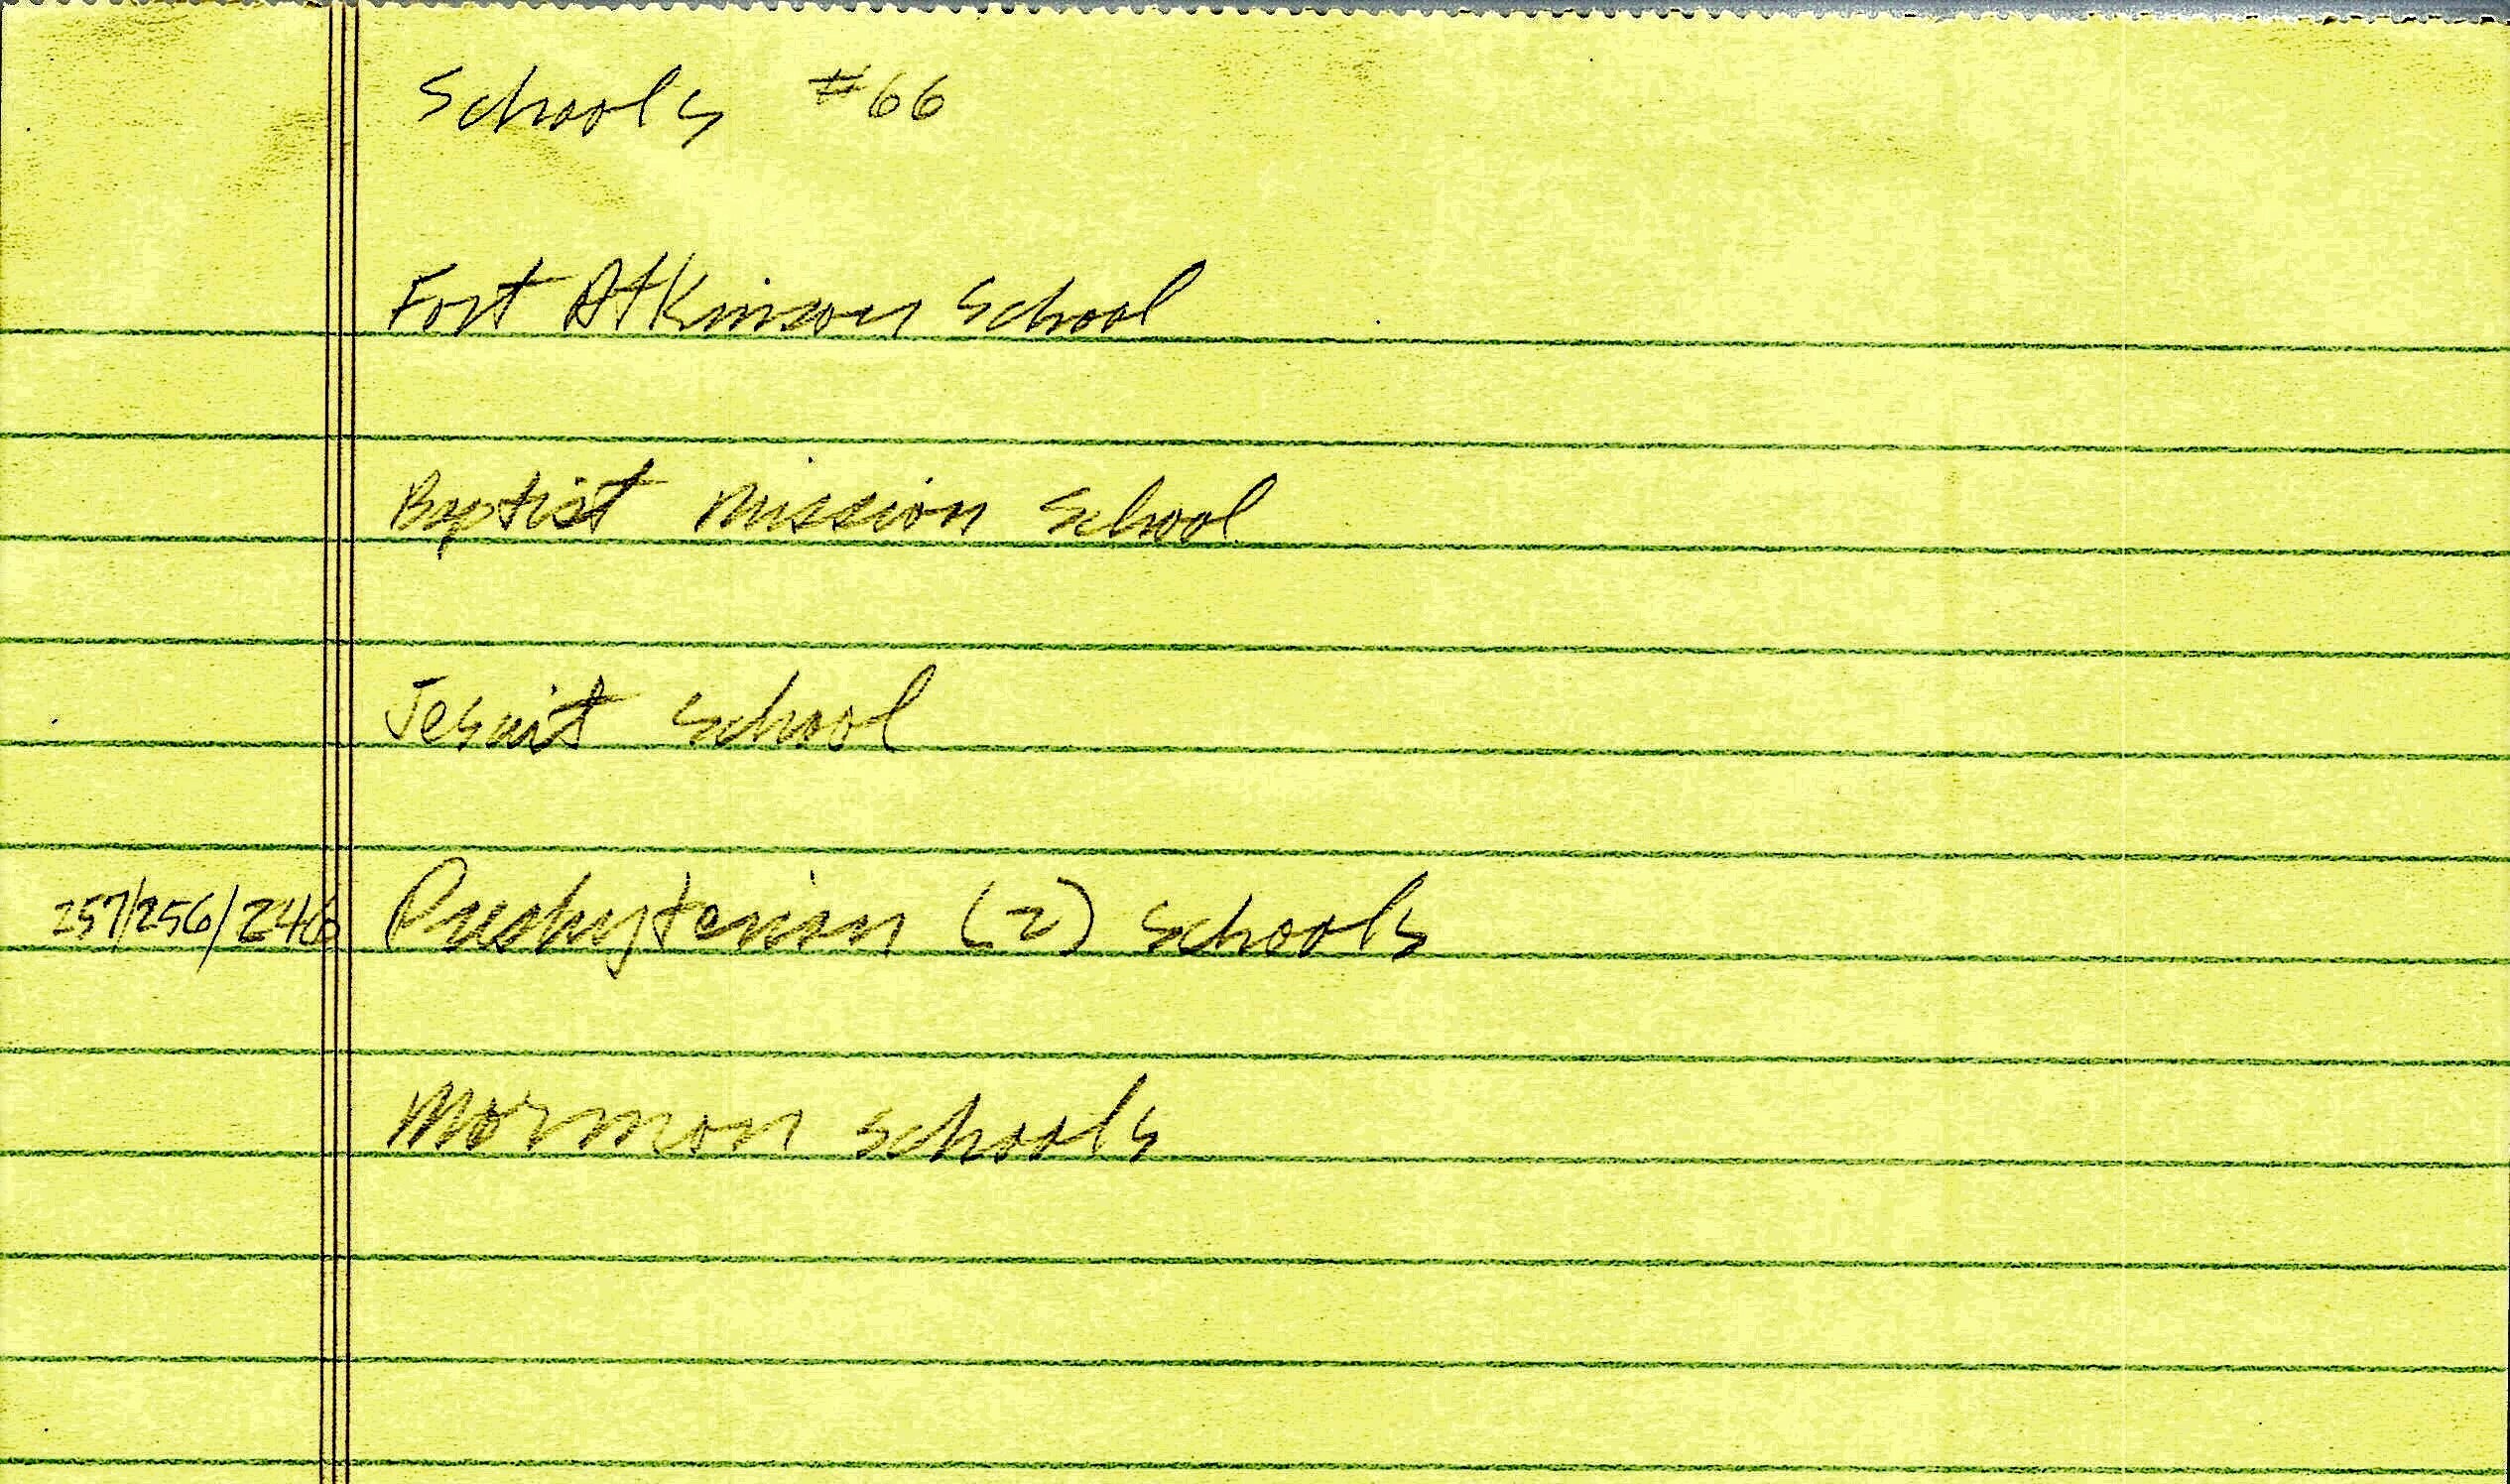 Schools #66
Fort Atkinson School
Baptist Mission School
Jesuit School
257/256/246 Presbyterian (2) Schools
Mormon Schools